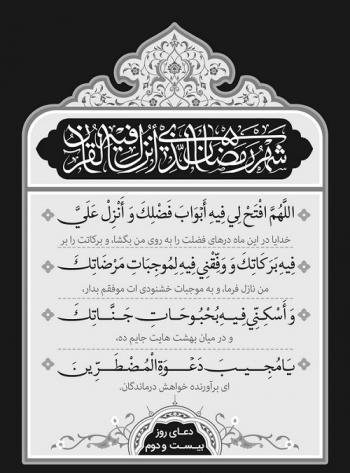 شَهْرُ رَمَضَانَ الَّذِي أُنْزِلَ فِيهِ الْقُرْآنُ
اَللَّهُمَّ افْتَحْ لِي فِيهِ أَبْوَابَ فَضْلِكَ وَ أَنْزِلْ عَلَيَّ
خدایا در این ماه درهای فضلت را به روی من بگشا، و برکاتت را بر
فِيهِ بَرَكَاتِكَ وَ وَفِّقْنِي فِيهِ لِمُوجِبَاتِ مَرْضَاتِكَ
من نازل فرما، و به موجبات خشنودی ات موفقم بدار،
وَ أَسْكِنِّي فِيهِ بُحْبُوحَاتِ جَنَّاتِكَ
و در میان بهشت هایت جایم ده،
يَا مُجِيبَ دَعْوَةِ الْمُضْطَرِّينَ
ای برآورنده خواهش درماندگان.
دعای روز
بیست و دوم